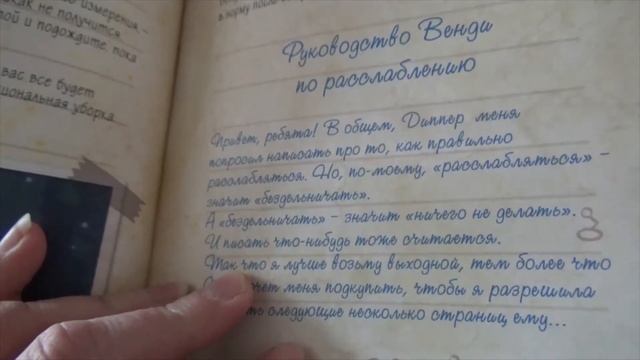 измерения –
как не получится
той и подождите, пока
вас все будет
уборка
в норму после
Руководство Венди
по расслаблению
Привет, ребята! В общем, Диппер меня
попросил написать про то, как правильно
расслабляться. Но, по-моему, «расслабляться» –
значит «бездельничать».
А «бездельничать» – значит «ничего не делать».
И писать что-нибудь тоже считается.
Так что я лучше возьму выходной, тем более что
меня подкупить, чтобы я разрешила
следующие несколько страниц ему...